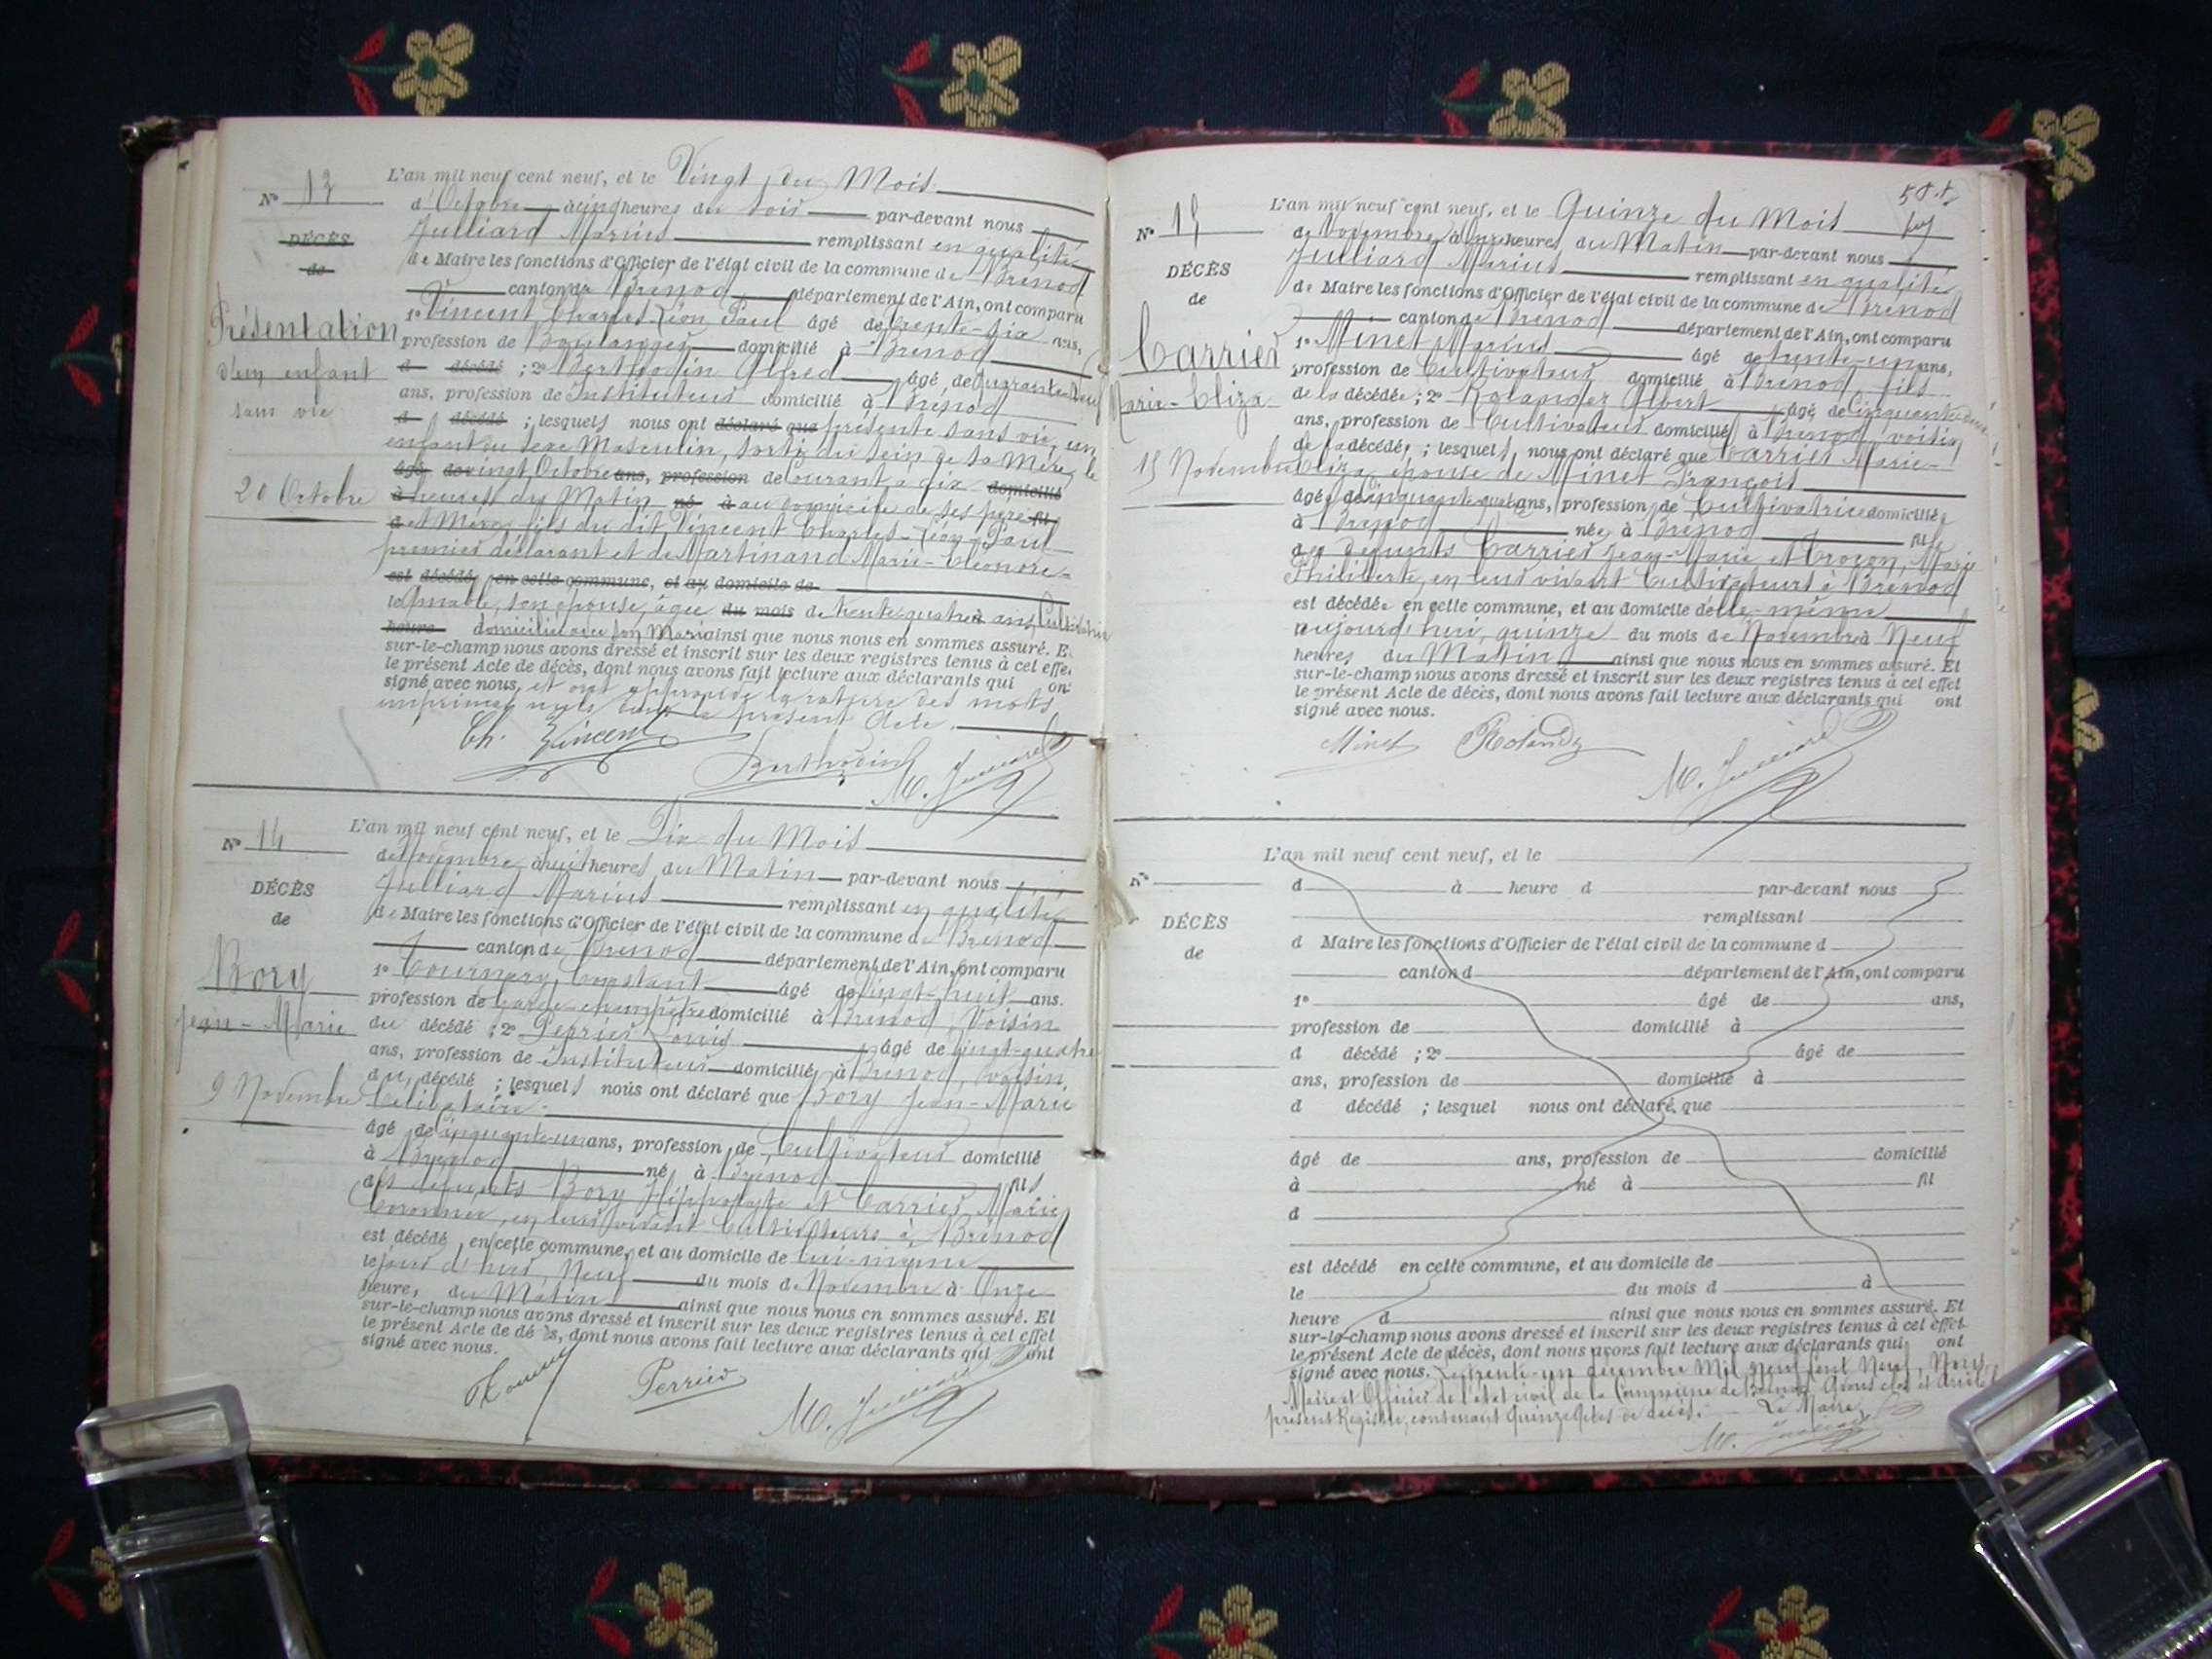 Nº 13
DÉCÈS
de
Présentation
d'un enfant
sans vie
20 Octobre
L'an mil neuf cent neuf, et le Vingt du Mois
d'Octobre à cinq heures du soir par-devant nous
Julliard Marius remplissant en qualité
de Maire les fonctions d'Officier de l'état civil de la commune de Brénod
canton de Brénod département de l'Ain, ont comparu
1º Vincent Charles Léon Paul âgé de trente-six ans,
profession de Boulanger domicilié à Brénod
d décédé ; 2º Berthodin Alfred âgé de quarante
ans, profession de Instituteur domicilié à Brénod
d décédé ; lesquels nous ont déclaré que présenté sans vie, un
enfant du sexe Masculin, sorti du sein de sa Mère, le
âgé de vingt Octobre ans, profession de Courant à dix domicilié
à heures du Matin né à au domicile de ses père fil
d et Mère, fils du dit Vincent Charles-Léon-Paul
premier déclarant et de Martinand Marie-Eléonore-
est décédé en cette commune, et au domicile de
son épouse, âgée du mois de trente-quatre à ans, Cultivatrice
heure domiciliée avec son Mari ainsi que nous nous en sommes assuré. E
sur-le-champ nous avons dressé et inscrit sur les deux registres tenus à cet effe
le présent Acte de décès, dont nous avons fait lecture aux déclarants qui on
signé avec nous, et ont approuvé la rature des mots
imprimés nuls dans le présent Acte.
Ch. Vincent
Berthodin
M. Julliard
Nº 14
DÉCÈS
de
Bory
Jean-Marie
9 Novembre
L'an mil neuf cent neuf, et le Dix du Mois
de Novembre à huit heures du Matin par-devant nous
Julliard Marius remplissant en qualité
de Maire les fonctions d'Officier de l'état civil de la commune de Brénod
canton de Brénod département de l'Ain, ont comparu
1º Tournery Constant âgé de vingt-huit ans.
profession de Garde champêtre domicilié à Brénod, Voisin
du décédé ; 2º Perrier Louis âgé de vingt-quatre
ans, profession de Instituteur domicilié à Brénod, voisin
du décédé ; lesquels nous ont déclaré que Bory Jean-Marie
Célibataire
âgé de cinquante-un ans, profession de Cultivateur domicilié
à Brénod né à Brénod fils
des défunts Bory Hippolyte et Carrier Marie
en leur vivant Cultivateurs à Brénod
est décédé en cette commune, et au domicile de lui-même
le jour d'hier, Neuf du mois de Novembre à Onze
heure, du Matin ainsi que nous nous en sommes assuré. Et
sur-le-champ nous avons dressé et inscrit sur les deux registres tenus à cet effet
le présent Acte de décès, dont nous avons fait lecture aux déclarants qui ont
signé avec nous.
Perrier
M. Julliard
Nº 15
DÉCÈS
de
Carrier
Marie-Eliza
15 Novembre
L'an mil neuf cent neuf, et le Quinze du Mois
de Novembre à Onze heures du Matin par-devant nous
Julliard Marius remplissant en qualité
de Maire les fonctions d'Officier de l'état civil de la commune de Brénod
canton de Brénod département de l'Ain, ont comparu
1º Minet Marius âgé de trente-un ans,
profession de Cultivateur domicilié à Brénod, fils
de la décédée ; 2º Rolandez Albert âgé de Cinquante-deux
ans, profession de Cultivateur domicilié à Brénod, voisin
de la décédé ; lesquels nous ont déclaré que Carrier Marie-
Eliza épouse de Minet François
âgée de Cinquante-quatre ans, profession de Cultivatrice domiciliée
à Brénod née à Brénod fille
des défunts Carrier Jean-Marie et Crozon, Marie
Philiberte, en leur vivant Cultivateurs à Brénod
est décédée en cette commune, et au domicile d'elle-même
aujourd'hui, quinze du mois de Novembre à Neuf
heures du Matin ainsi que nous nous en sommes assuré. Et
sur-le-champ nous avons dressé et inscrit sur les deux registres tenus à cet effet
le présent Acte de décès, dont nous avons fait lecture aux déclarants qui ont
signé avec nous.
Minet Rolandez
M. Julliard
Nº
DÉCÈS
de
L'an mil neuf cent neuf, et le
d à heure d par-devant nous
remplissant
d Maire les fonctions d'Officier de l'état civil de la commune d
canton d département de l'Ain, ont comparu
1º âgé de ans,
profession de domicilié à
d décédé ; 2º âgé de
ans, profession de domicilié à
d décédé ; lesquel nous ont déclaré que
âgé de ans, profession de domicilié
à né à fil
d
est décédé en cette commune, et au domicile de
le du mois d à
heure d ainsi que nous nous en sommes assuré. Et
sur-le-champ nous avons dressé et inscrit sur les deux registres tenus à cet effet
le présent Acte de décès, dont nous avons fait lecture aux déclarants qui ont
signé avec nous. Le trente-un décembre Mil neuf cent Neuf, Nous
Maire et Officier de l'état civil de la Commune de Brénod avons clos et arrêté
présent Registre, contenant quinze Actes de décès. Le Maire,
M. Julliard